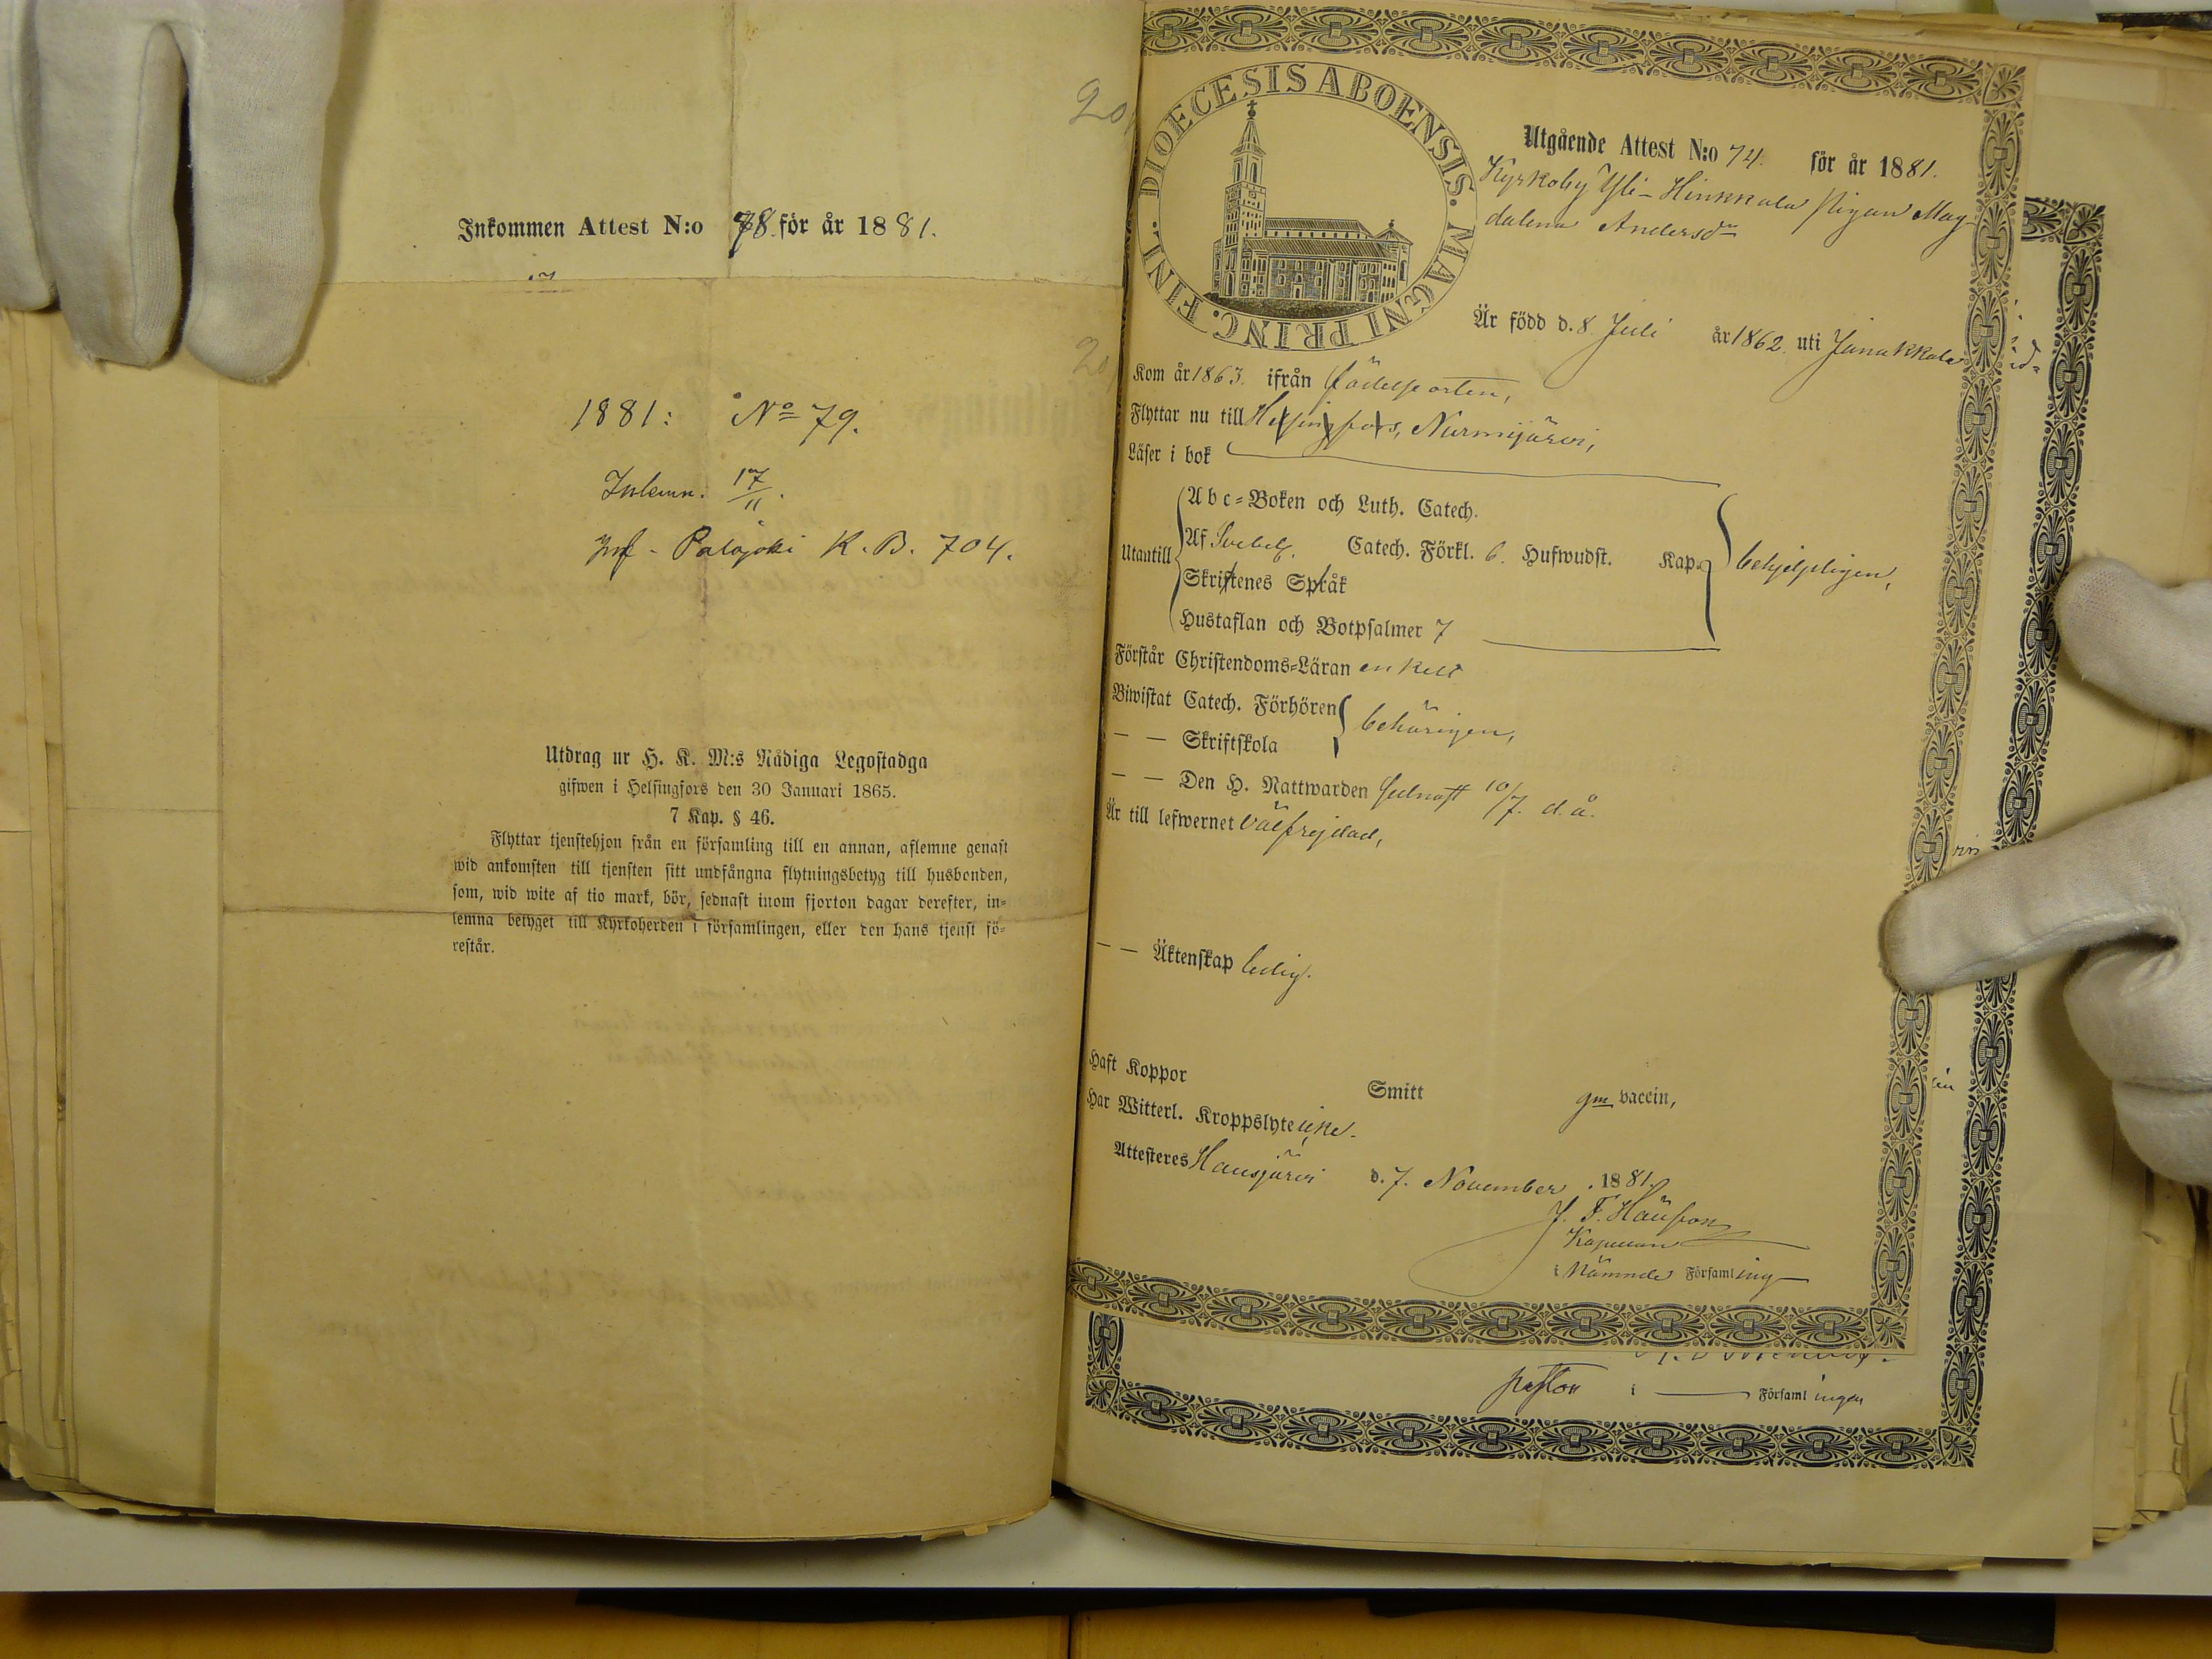 Inkommen Attest N:o 78. för år 1881.
1881: No 79.
Inlemn. 17/11.
Palojoki K. B. 704.
Utdrag ur H. K. M:s Nådiga Legostadga
gifwen i Helsingfors den 30 Januari 1865.
7 Kap. § 46.
Flyttar tjenstehjon från en församling till en annan, aflemne genast
wid ankomsten till tjensten sitt undfångna flyttningsbetyg till husbonden,
som, wid wite af tio mark, bör, sednast inom fjorton dagar derefter, in=
lemna betyget till Kyrkoherden i församlingen, eller den hans tjenst fö=
restår.
20
20
DIOECESIS ABOENSIS. MAGNI PRINC. FINL.
Utgående Attest N:o 74. för år 1881.
Kyrkoby Yli-Hinkkala pigan Mag-
dalena Andersdr
Är född d. 8 Juli år 1862. uti Janakkala
Kom år 1863. ifrån födelseorten,
Flyttar nu till Helsingfors, Nurmijärvi,
Läser i bok
Utantill
Abc=Boken och Luth. Catech.
Af Svebel. Catech. Förkl. 6. Hufwudst. Kap.
Skriftenes Språk
Hustaflan och Botpsalmer 7
behjelpligen,
Förstår Christendoms=Läran enkelt
Biwistat Catech. Förhören
— — Skriftskola
behörigen,
— — Den H. Nattwarden sednast 10/7. d. å.
Är till lefwernet välfrejdad,
— — Äktenskap ledig.
Haft Koppor Smitt gm vaccin,
Har Witterl. Kroppslyte icke.
Attesteres Hausjärvi d. 7. November. 1881.
J. F.
Kapellan
i nämnde Församling
pastor i Församlingen